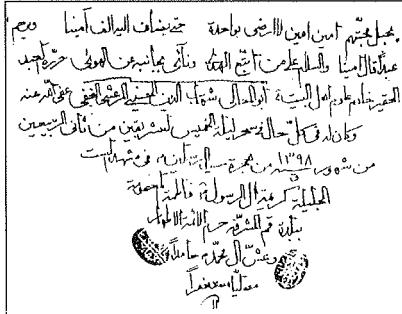 بحبل محبتهم آمين آمين لا ارضى بواحدة حتى يضاف اليه الف آمينا ويرحم
عبداً قال آمينا والسلام على من اتبع الهدى ونأى بجانبه عن الهوى حرره العبد
الحقير خادم علوم اهل البيت ابو المعالي شهاب الدين الحسيني المرعشي النجفي عفى الله عنه
وكان له في كل حال في سحر ليلة الخميس لست بقين من ثاني الربيعين
من شهور ١٣٩٨ من هجرة سيد في مشهد الست
الجليلة كريمة آل الرسول فاطمة المعصومة
ببلدة قم المشرفة حرم الائمة الاطهار
وعش آل محمد حامداً
مصلياً مستغفراً